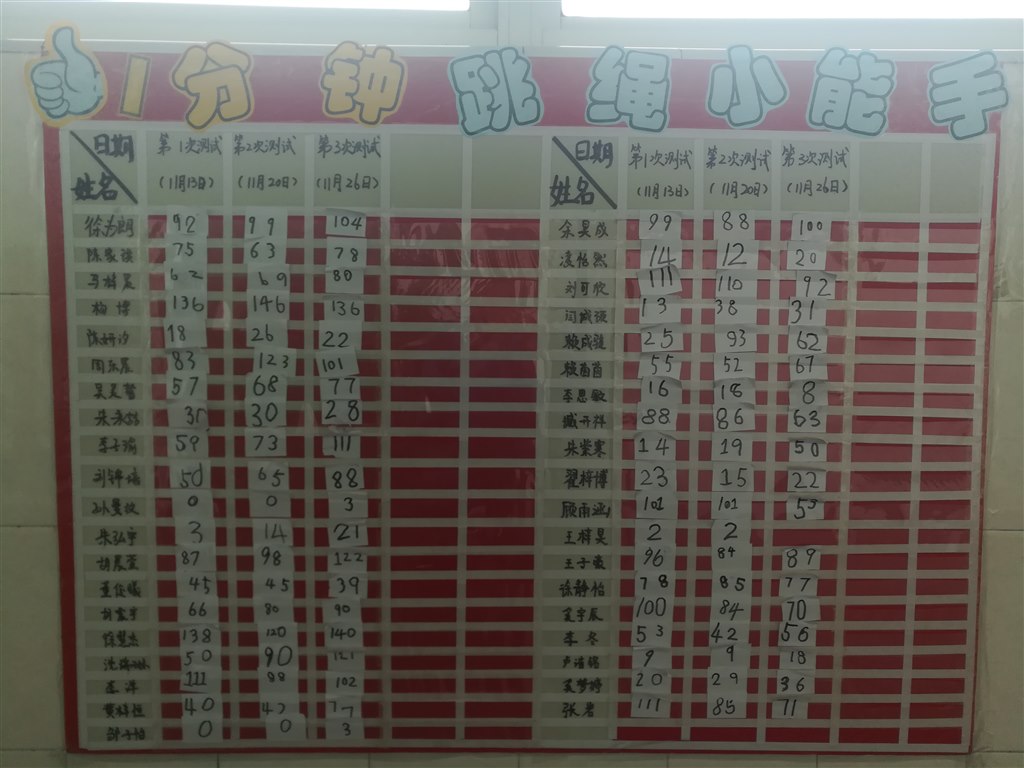 1分钟跳绳小能手
日期 姓名 第1次测试 (11月13日) 第2次测试 (11月20日) 第3次测试 (11月26日)
92 99 104
75 63 78
62 69 80
杨博 136 146 136
18 26 22
周乐 83 123 101
57 68 77
30 28
李子瑜 59 73 111
50 65 88
0 0 3
朱弘宇 3 14 21
87 98 122
45 45 39
66 80 90
138 120 140
50 90 121
111 88 102
40
0 0 3
日期 姓名 第1次测试 (11月13日) 第2次测试 (11月20日) 第3次测试 (11月26日)
余昊成 99 88 100
凌怡然 14 12 20
刘可欣 111 110 92
13 38 31
25 93 62
55 52 67
李思敏 16 18 8
臧开祥 88 86 63
朱紫寒 14 19 50
翟梓博 23 15 22
顾雨涵 101 101
王梓昊 2 2
王子 96 84 89
徐静怡 78 85 77
宇辰 100 84 70
李冬 53 42 56
9 9 18
梦婷 20 29 36
张岩 111 85 71